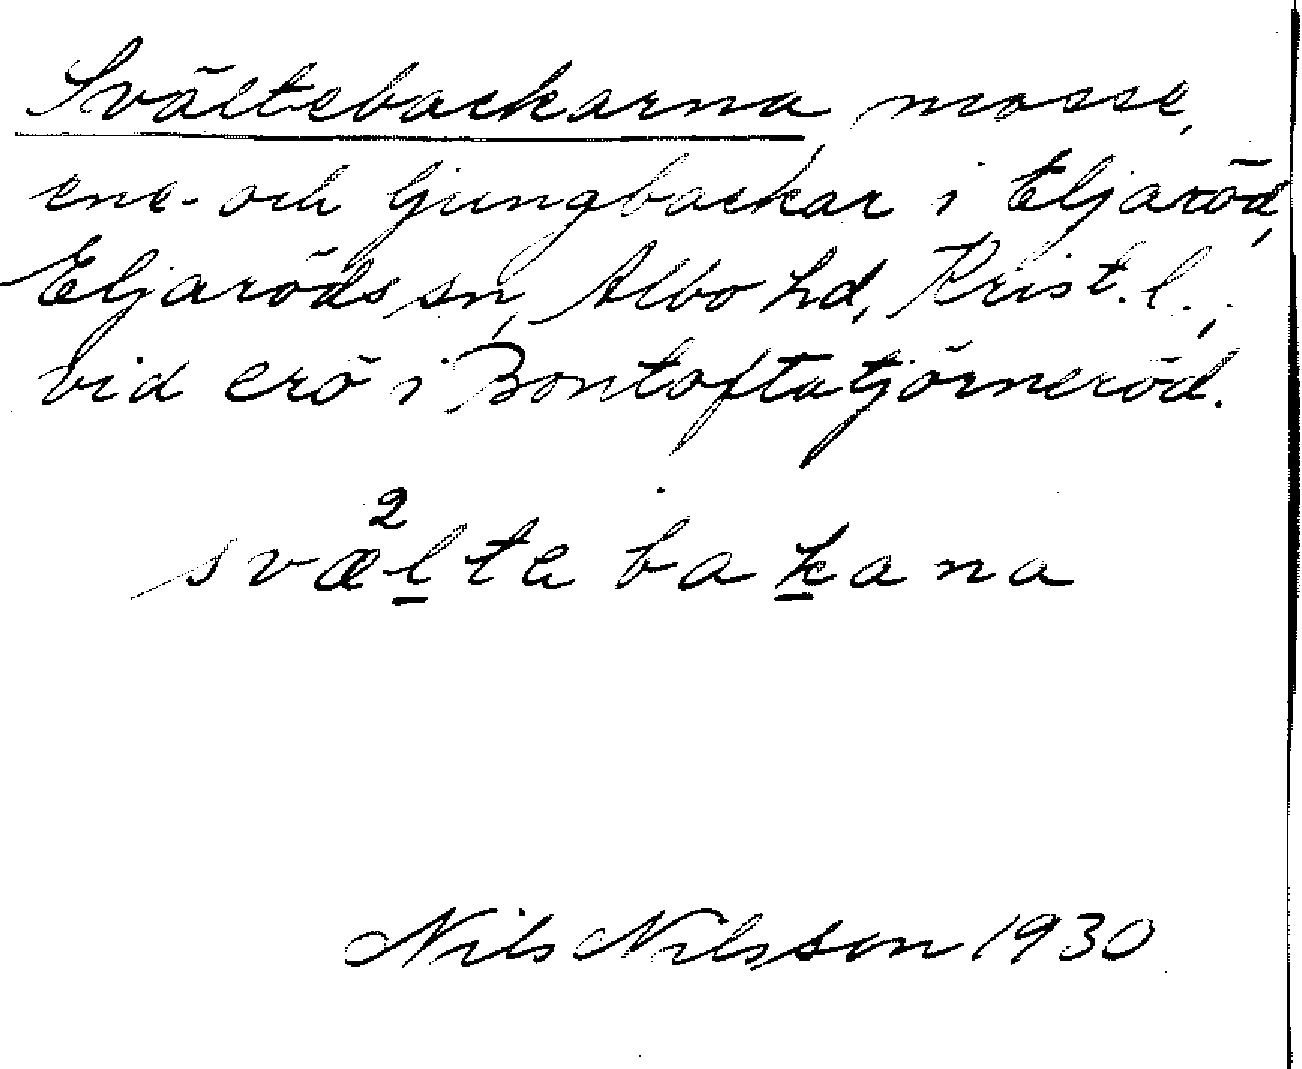 Svältebackarna, mosse,
ene- och ljungbackar i Eljaröd,
Eljaröds sn, Albo hd, Krist. l.,
vid erö i Bontoftatjörneröd.
2
svælte bakana
Nils Nilsson 1930